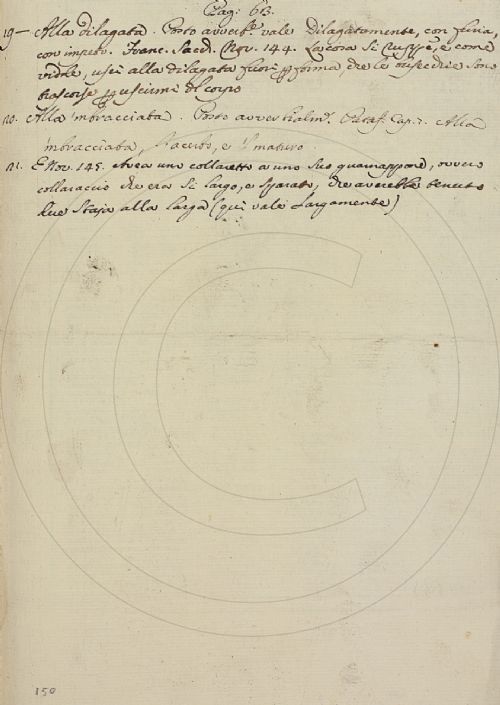 Pag: 613.
19 — Alla dilagata. Posto avverb.e vale Dilagatamente, con furia,
con impeto. Franc. Sacch. Nov. 144. La cosa si ruppe, e come
vidde, uscì alla dilagata fuori forma, che le
trascorse uscirmi del corpo
20. Alla imbracciata. Posto avverbialm.e Cap. 7. Alla
imbracciata, l'acerbo, e 'l maturo.
21. E Nov. 145. Avea un collaretto a uno suo guarnappone, ovvero
collaraccio che era sì largo, e sparato, che averebbe tenuto
due Staja alla larga (qui vale Largamente)
150